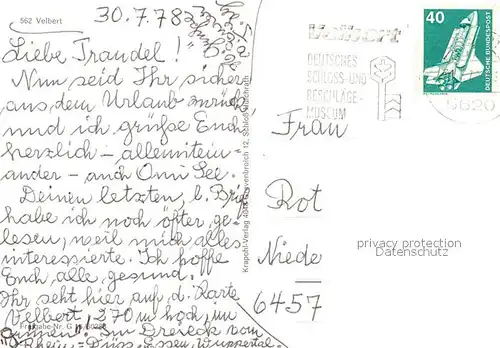 562 Velbert
30.7.78
Liebe Trandel!
Nun seid Ihr sicher
aus dem Urlaub zurück
und ich grüße Euch
herzlich – allen mitein-
ander – auch Omi See.
Deinen letzten, l. Brief
habe ich noch öfter ge-
lesen, weil mich alles
interessierte. Ich hoffe
Euch alle, gesund.
Ihr seht hier auf d. Karte
Velbert! 270 m hoch, im
"Grünen". Im Dreieck vom
Rhein – Düss., Essen, Wuppertal
Freigabe-Nr. G
Krapohl-Verlag 404 Grevenbroich 12, Schloß Hülchrath
Velbert
DEUTSCHES
SCHLOSS- UND
BESCHLÄGE-
MUSEUM
40
DEUTSCHE BUNDESPOST
5620
Frau
Rot
Niede
6457
privacy protection
Datenschutz